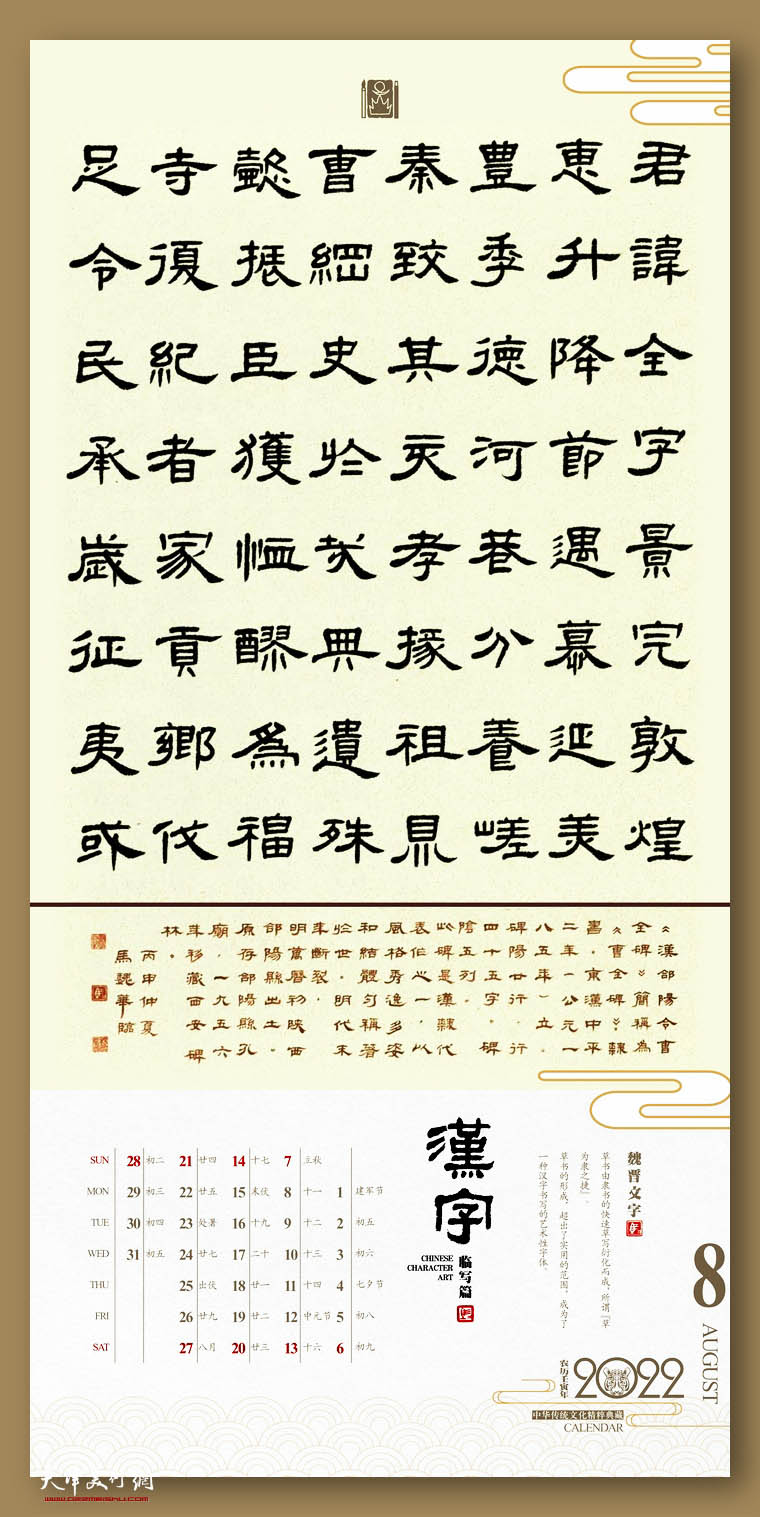 君諱全字景完敦煌
惠升降節遇慕延美
豊季德河巷分養嵯
秦致其孝掾祖
曹綱史於典遺殊
懿振臣獲恤醪為福
寺復紀者家貢鄉伐
足令民承歲征夷或
《漢郃陽令曹
全碑》簡稱為
《曹全碑》隸
書。東漢中平
二年（公元一
八五年）立。
碑陽廿行，行
四十五字。碑
陰五列。
此碑是漢隸代
表作之一，以
風格秀逸多姿
和結體勻稱著
於世。明代末
年斷裂。
明萬曆初陝西
郃陽縣出土。
原存郃陽縣孔
廟，一九五六
年移藏西安碑
林。
丙申仲夏
馬魏華臨
漢字
临写篇
CHINESE
CHARACTER
ART
魏晋文字
草书由隶书的快速草写衍化而成，所谓『草
为隶之捷』。
草书的形成，超出了实用的范围，成为了
一种汉字书写的艺术性字体。
SUN 28 初二 21 廿四 14 十七 7 立秋
MON 29 初三 22 廿五 15 末伏 8 十一 1 建军节
TUE 30 初四 23 处暑 16 十九 9 十二 2 初五
WED 31 初五 24 廿七 17 二十 10 十三 3 初六
THU 25 出伏 18 廿一 11 十四 4 七夕节
FRI 26 廿九 19 廿二 12 中元节 5 初八
SAT 27 八月 20 廿三 13 十六 6 初九
8
AUGUST
农历壬寅年
2022
中华传统文化精粹典藏
CALENDAR
天津美术網